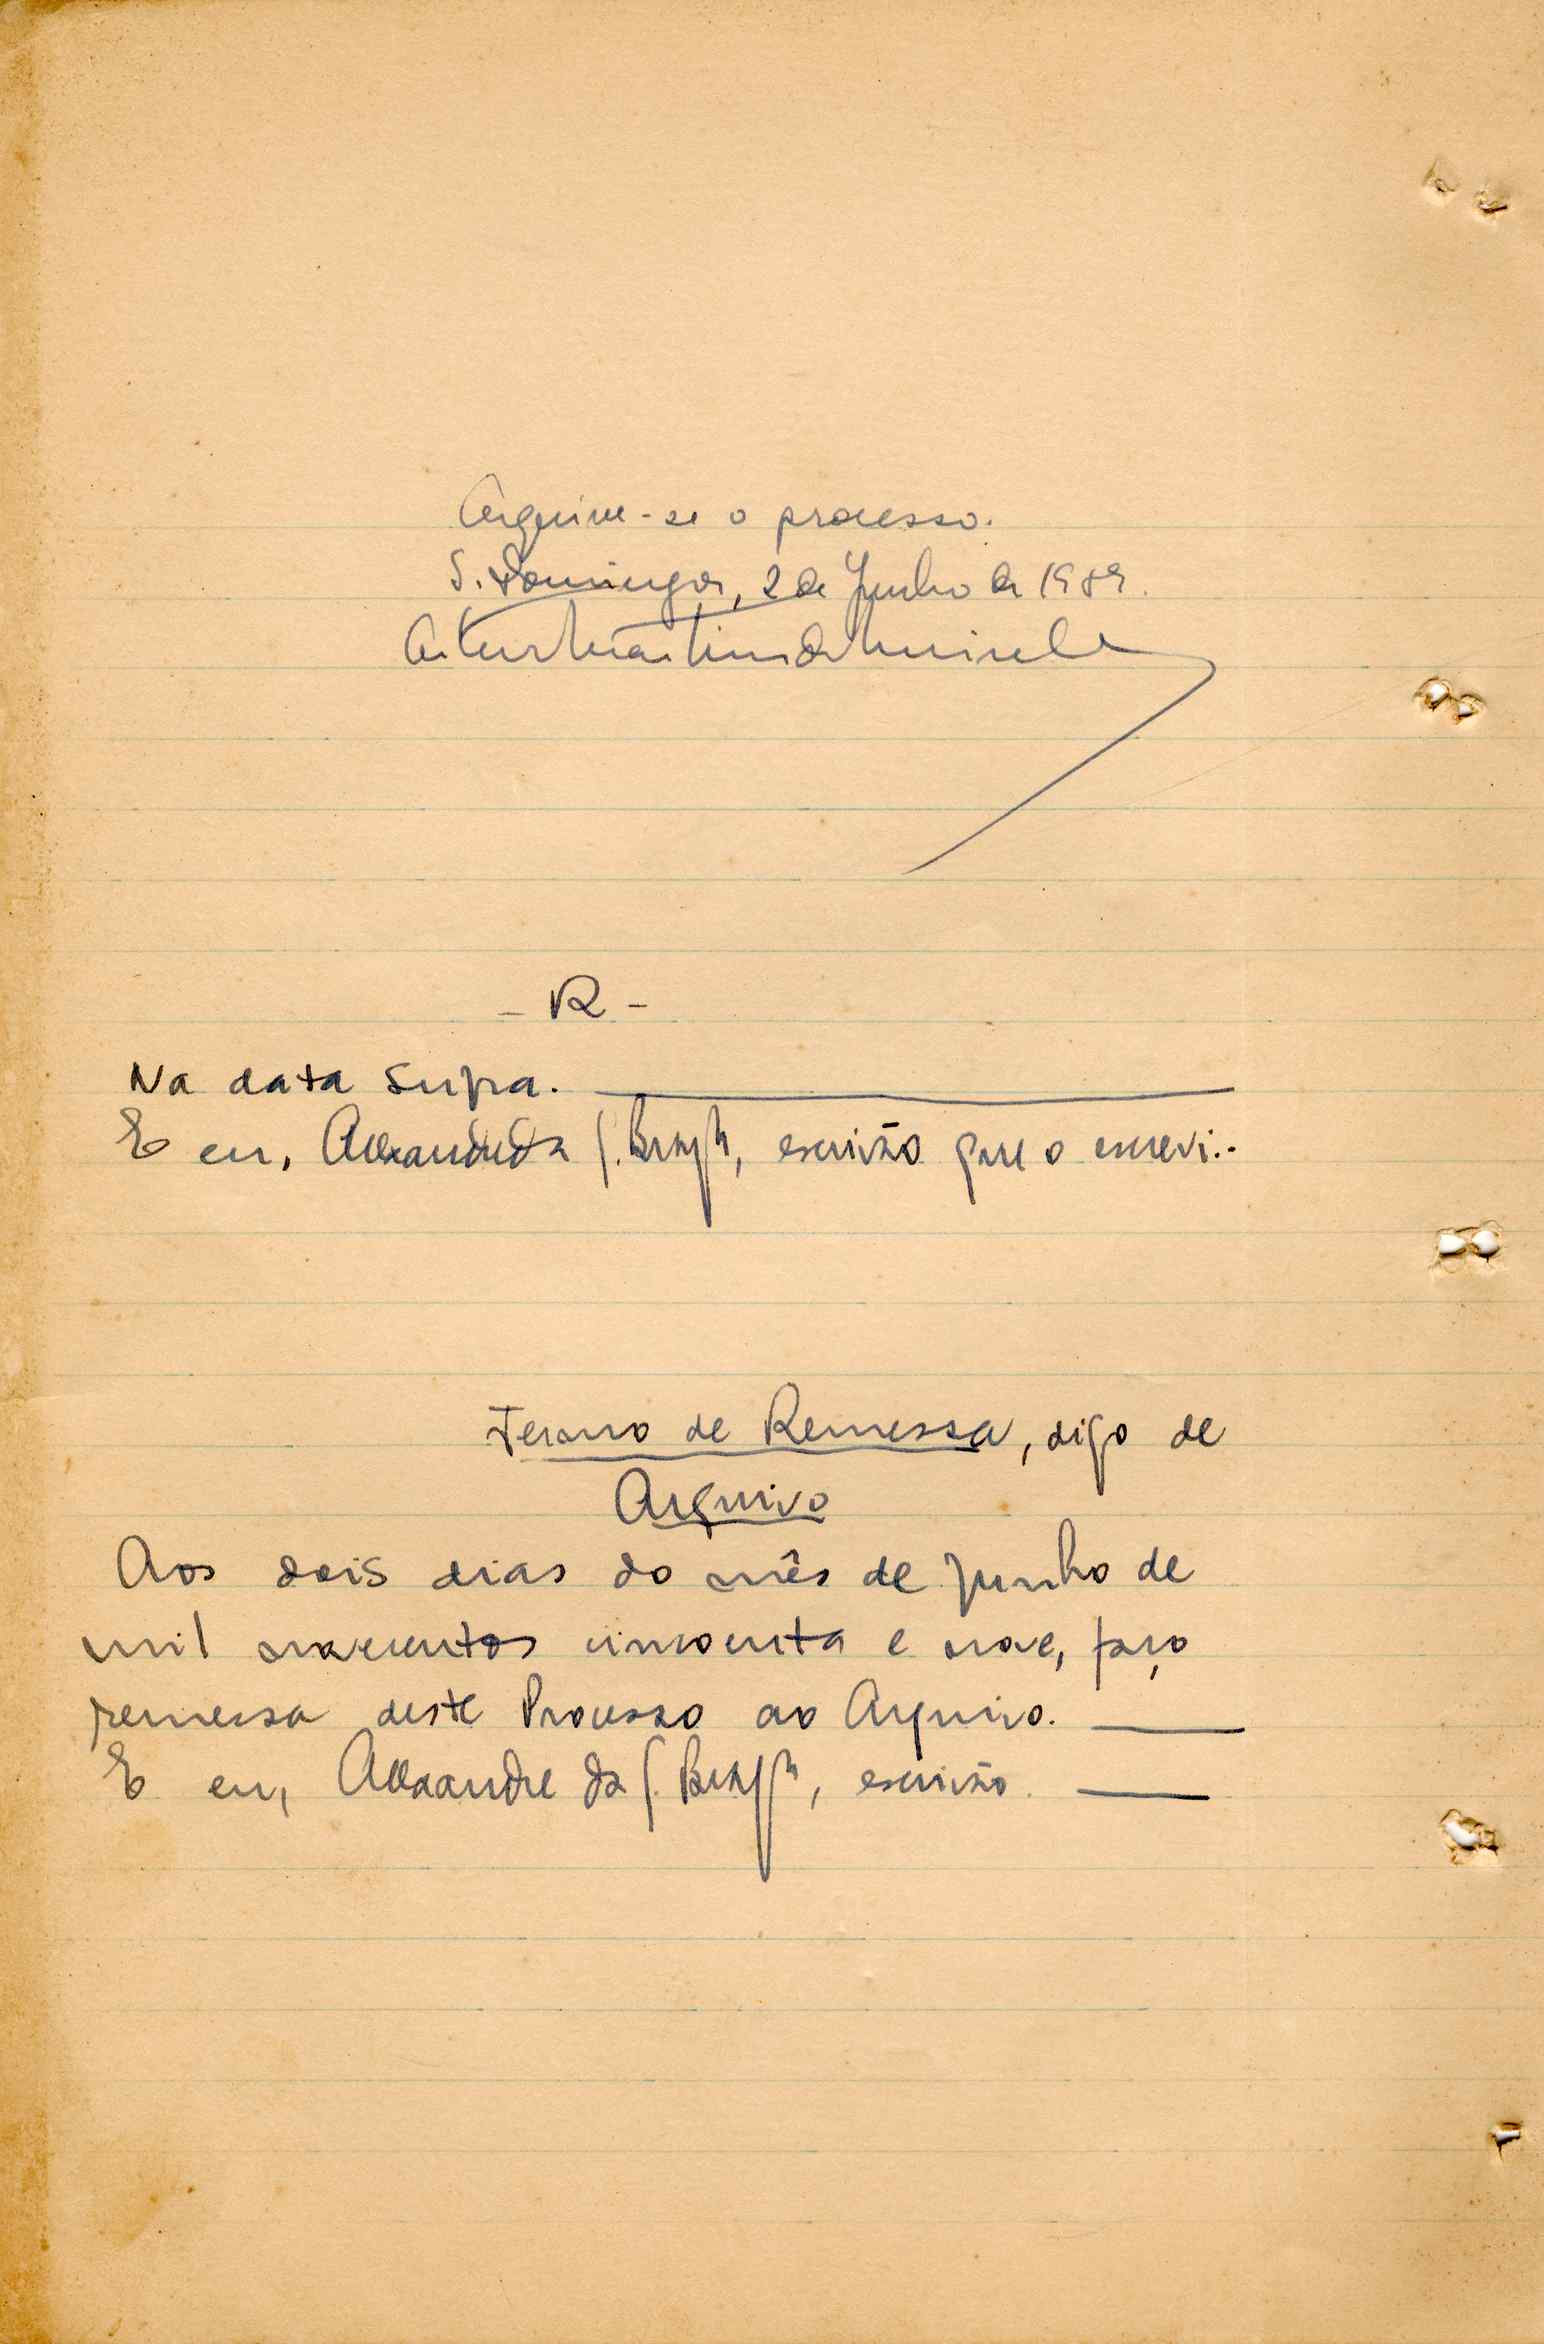 Arquive-se o processo.
S. Domingos, 2 de Junho de 1959.
Artur Martins de
- R -
Na data supra.
E eu, Alexandre da S. , escrivão que o escrevi..
Termo de Remessa, digo de
Arquivo
Aos dois dias do mês de Junho de
mil novecentos cincoenta e nove, faço
remessa deste Processo ao Arquivo.
E eu, Alexandre da S. , escrivão